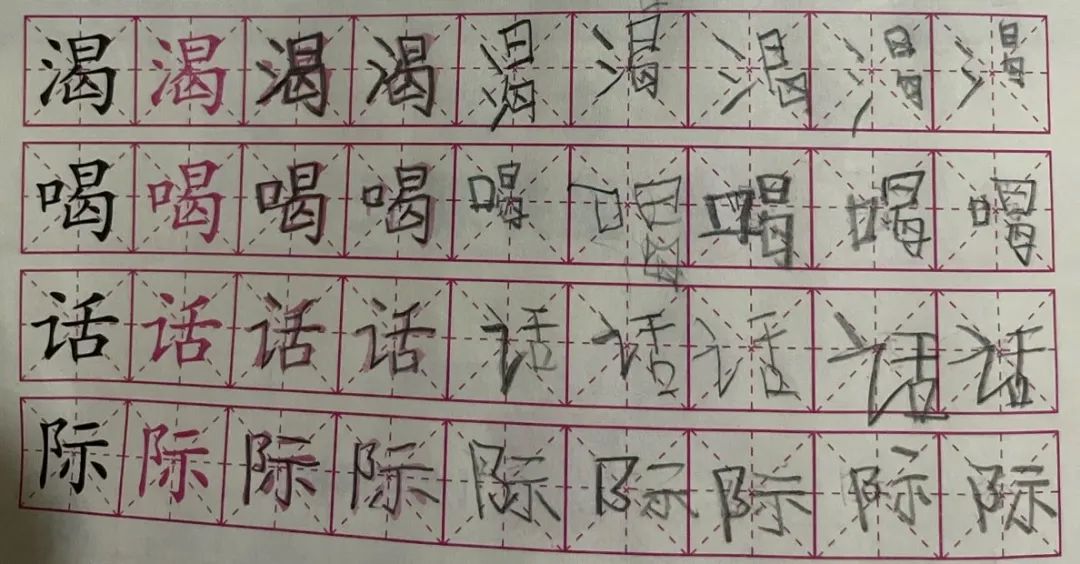 渴渴渴渴渴渴渴渴渴
喝喝喝喝喝喝喝喝喝
话话话话话话话话话
际际际际际际际际际